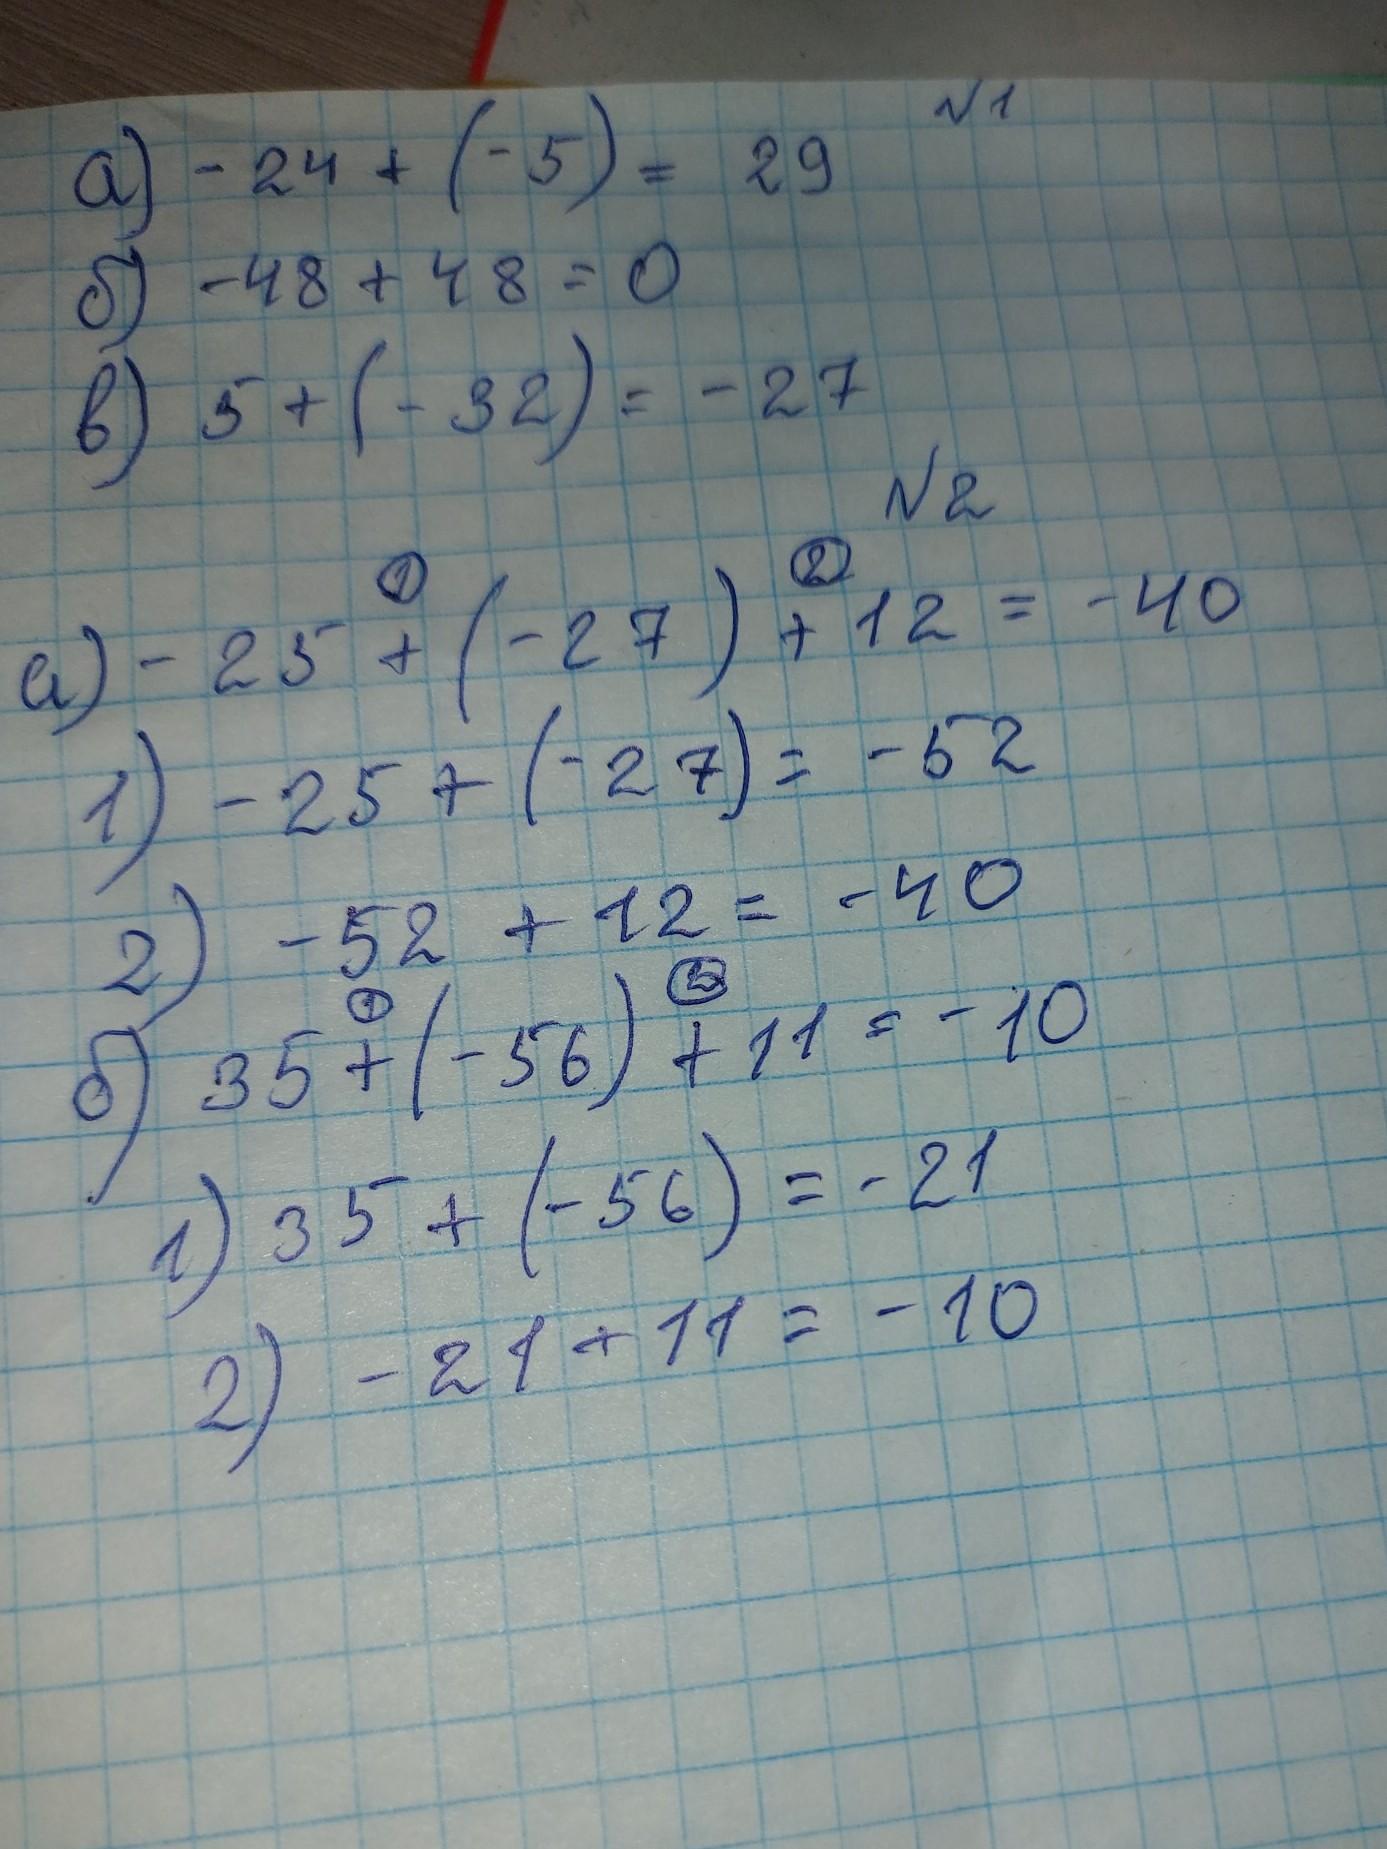 №1
а) -24 + (-5) = 29
б) -48 + 48 = 0
в) 5 + (-32) = -27
№2
① ②
а) -25 + (-27) + 12 = -40
1) -25 + (-27) = -52
2) -52 + 12 = -40
① ②
б) 35 + (-56) + 11 = -10
1) 35 + (-56) = -21
2) -21 + 11 = -10